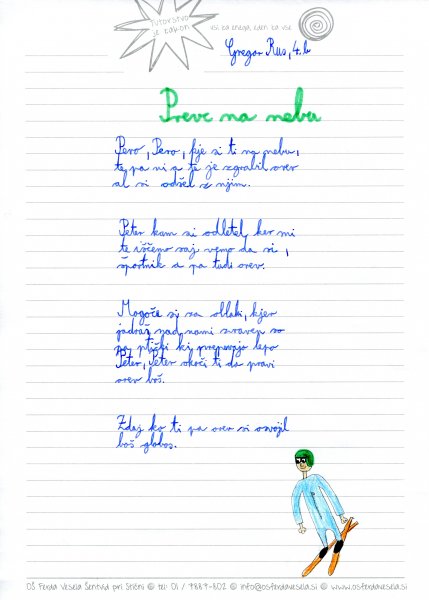 Tutorstvo
je zakon
vsi za enega, eden za vse
Gregor Rus, 4. b
Prevc na nebu
Pero, Pero, kje si ti na nebu,
te pa ni a te je zgrabil orev
al si odšel z njim.
Peter kam si odletel, ker mi
te iščemo saj vemo da si,
športnik a pa tudi orev.
Mogoče si za oblaki, kjer
jadraš nad nami zraven so
pa ptički ki prepevajo lepo
Peter, Peter skoči ti da pravi
orev boš.
Zdaj ko ti pa orev si osvojil
boš globus.
OŠ Ferda Vesela Šentvid pri Stični © tel: 01 / 7887-802 © info@osferdavesela.si © www.osferdavesela.si